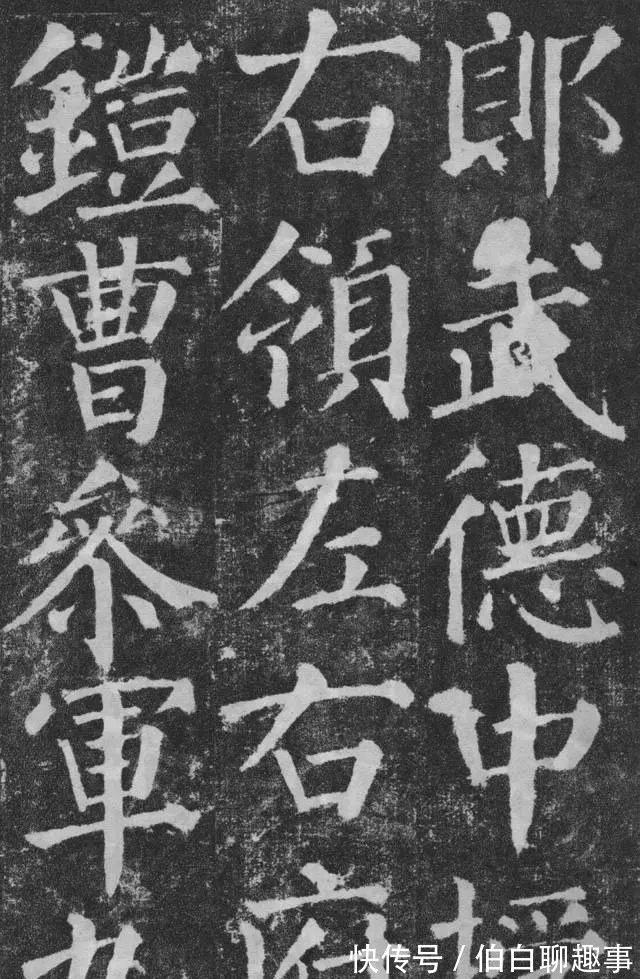 郎武德中授
右領左右府
鎧曹參軍九
快传号 / 伯白聊趣事